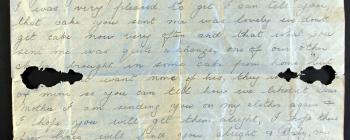 I was very pleased to get I can tell you,
that cake you sent me was lovely we dont
get cake now very often and that what you
sent me was quite a change, one of our other
brought in some cake from home
want none of his, they
of mine so you can tell how we
Mother I am sending you on my clothes again
I hope you will get them alright, I hope that
will find you bright &